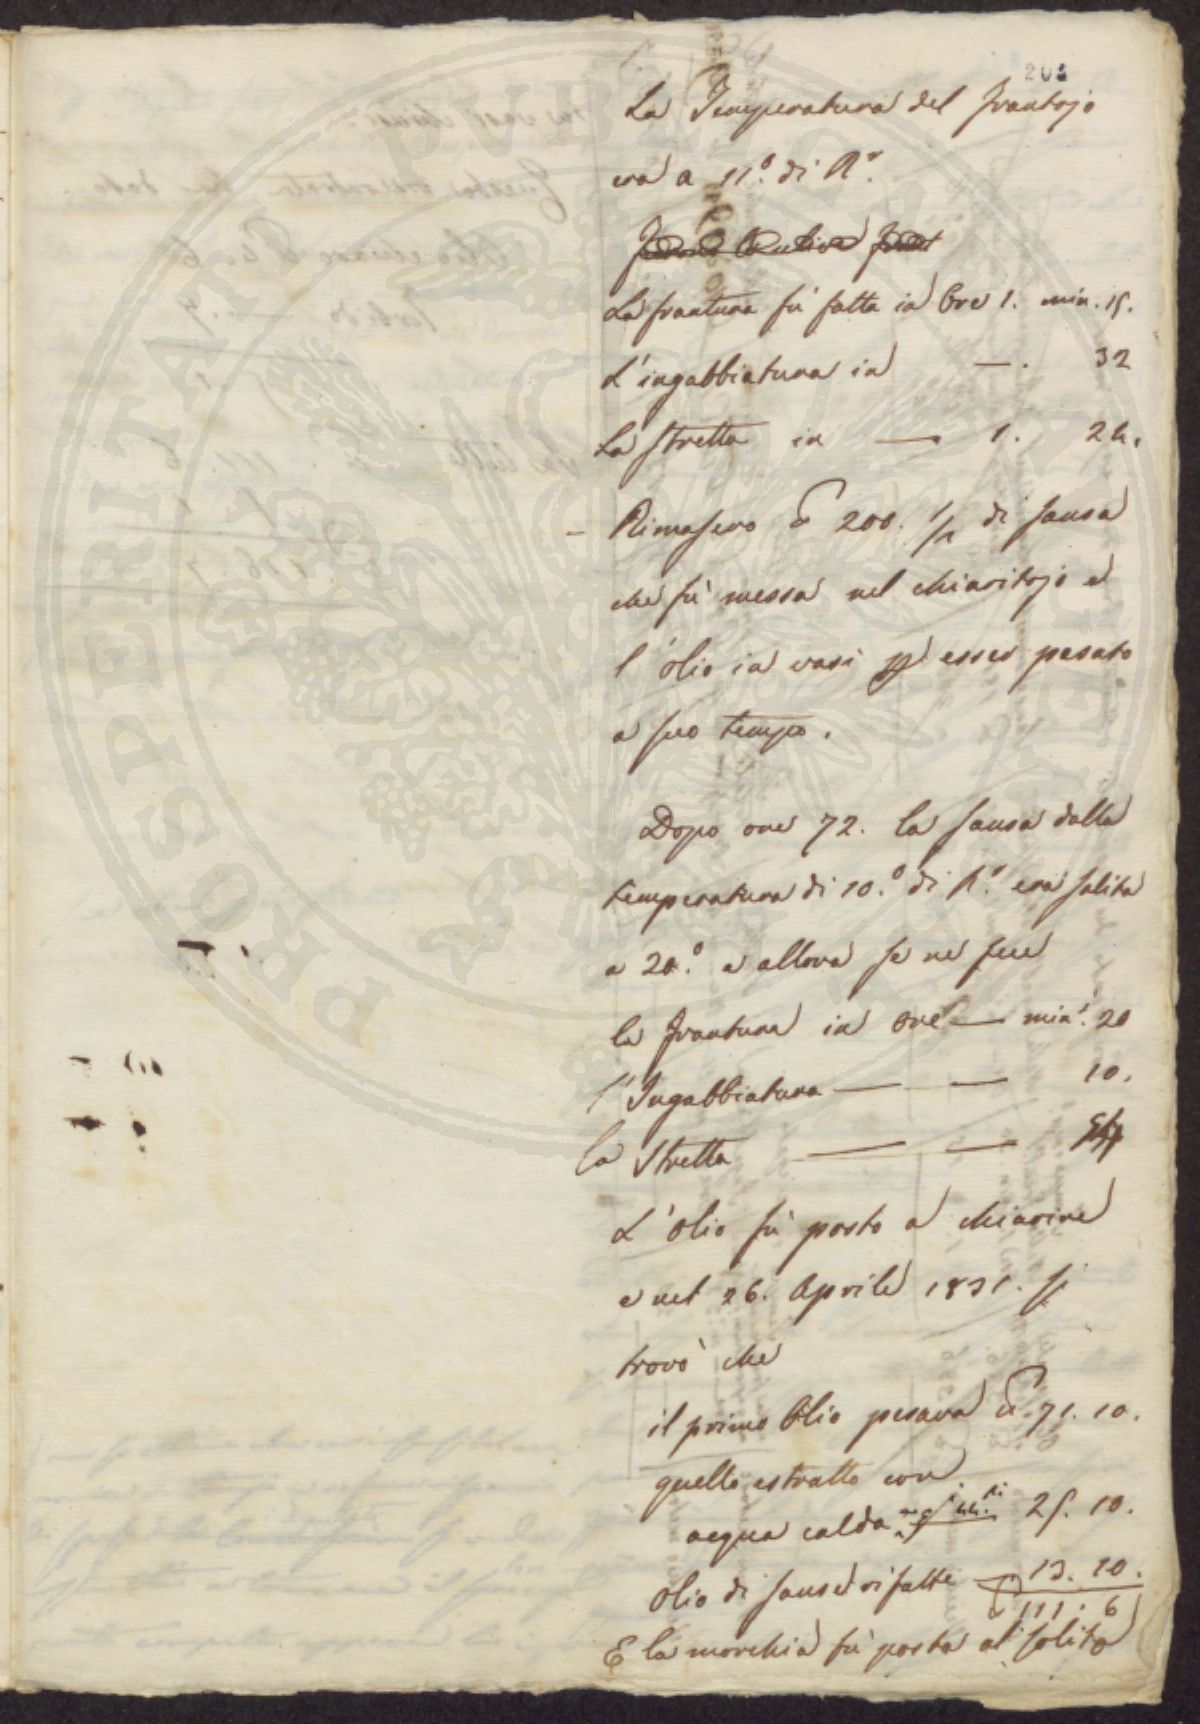 202
La Temperatura del Frantojo
era a 11.° di R.r
La frantura fù fatta in Ore 1. min. 15.
L'ingabbiatura in — . 32
La Stretta in — 1. 24.
– Rimasero 200. 1/2 di sansa
che fù messa nel chiaritojo e
l'olio in vasi per esser pesato
a suo tempo.
Dopo ore 72. la sansa dalla
temperatura di 10.° di R.r era salita
a 20.° e allora se ne fece
la frantura in ore — min. 20
l'Ingabbiatura — — 10.
la Stretta — —
L'olio fù posto a chiarire
e nel 26. Aprile 1831. si
trovò che
il primo Olio pesava 71. 10.
quello estratto con
acqua calda 25. 10.
Olio di sanse rifatte — 13. 10.
111. 6
E la morchia fù posta al solito
PROSPERITATI PUBLICAE